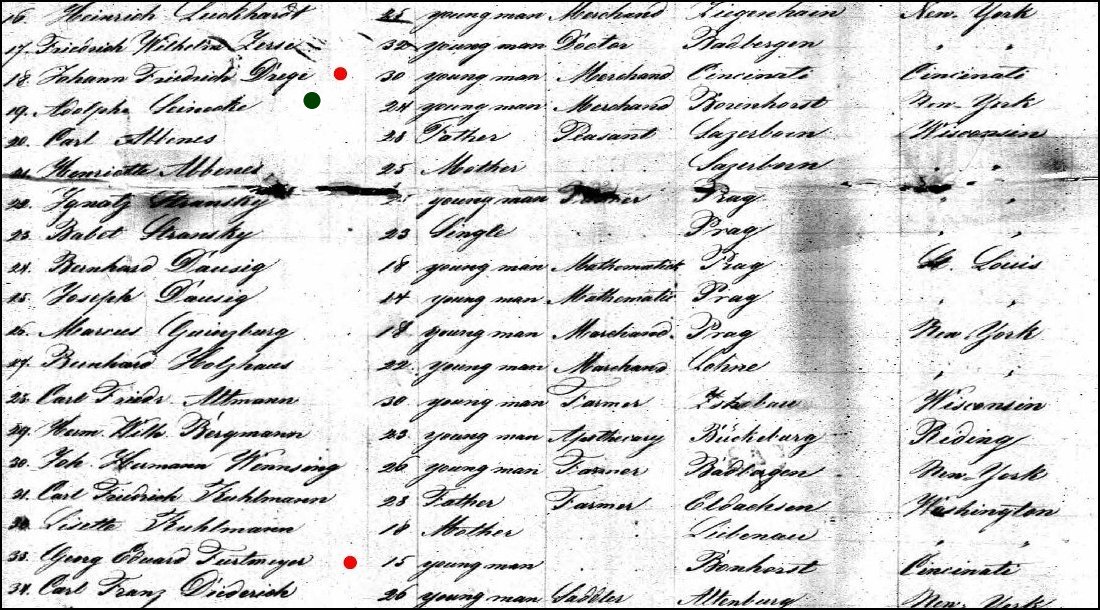 16. Heinrich Luckhardt 25 young man Merchand Ziegenhain New-York
17. Friedrich Wilhelm 32 young man Doctor Badbergen " "
18. Johann Friedrich Drege 30 young man Merchand Cincinati Cincinati
19. Adolph Leinecke 24 young man Merchand Borenhorst New-York
20. Carl Abbenes 28 Father Peasant Wisconsin
21. Henriette Abbenes 25 Mother " "
22. Ignatz Stransky young man Prag " "
23. Babet Stransky 23 Single Prag " "
24. Bernhard Dausig 18 young man Mathematick Prag St. Louis
25. Joseph Dausig 14 young man Mathematic Prag " "
26. Marcus Guinzburg 18 young man Marchand. Prag New-York
27. Bernhard Holzhaus 22 young man Marchand Lohne " "
28. Carl Friedr Altmann 30 young man Farmer Wisconsin
29. Herm. Wilh. Bergmann 23 young man Apothecary Bückeburg Riding
30. Joh. Hermann Wennsing 26 young man Farmer Badbergen New-York
31. Carl Friedrich Kuhlmann 28 Father Farmer Eldachsen Washington
32. Lisette Kuhlmann 18 Mother Liebenau " "
33. Georg Eduard Furtmeyer 15 young man Bonhorst Cincinati
34. Carl Franz Diederich 26 young man Saddler Altenburg New-York